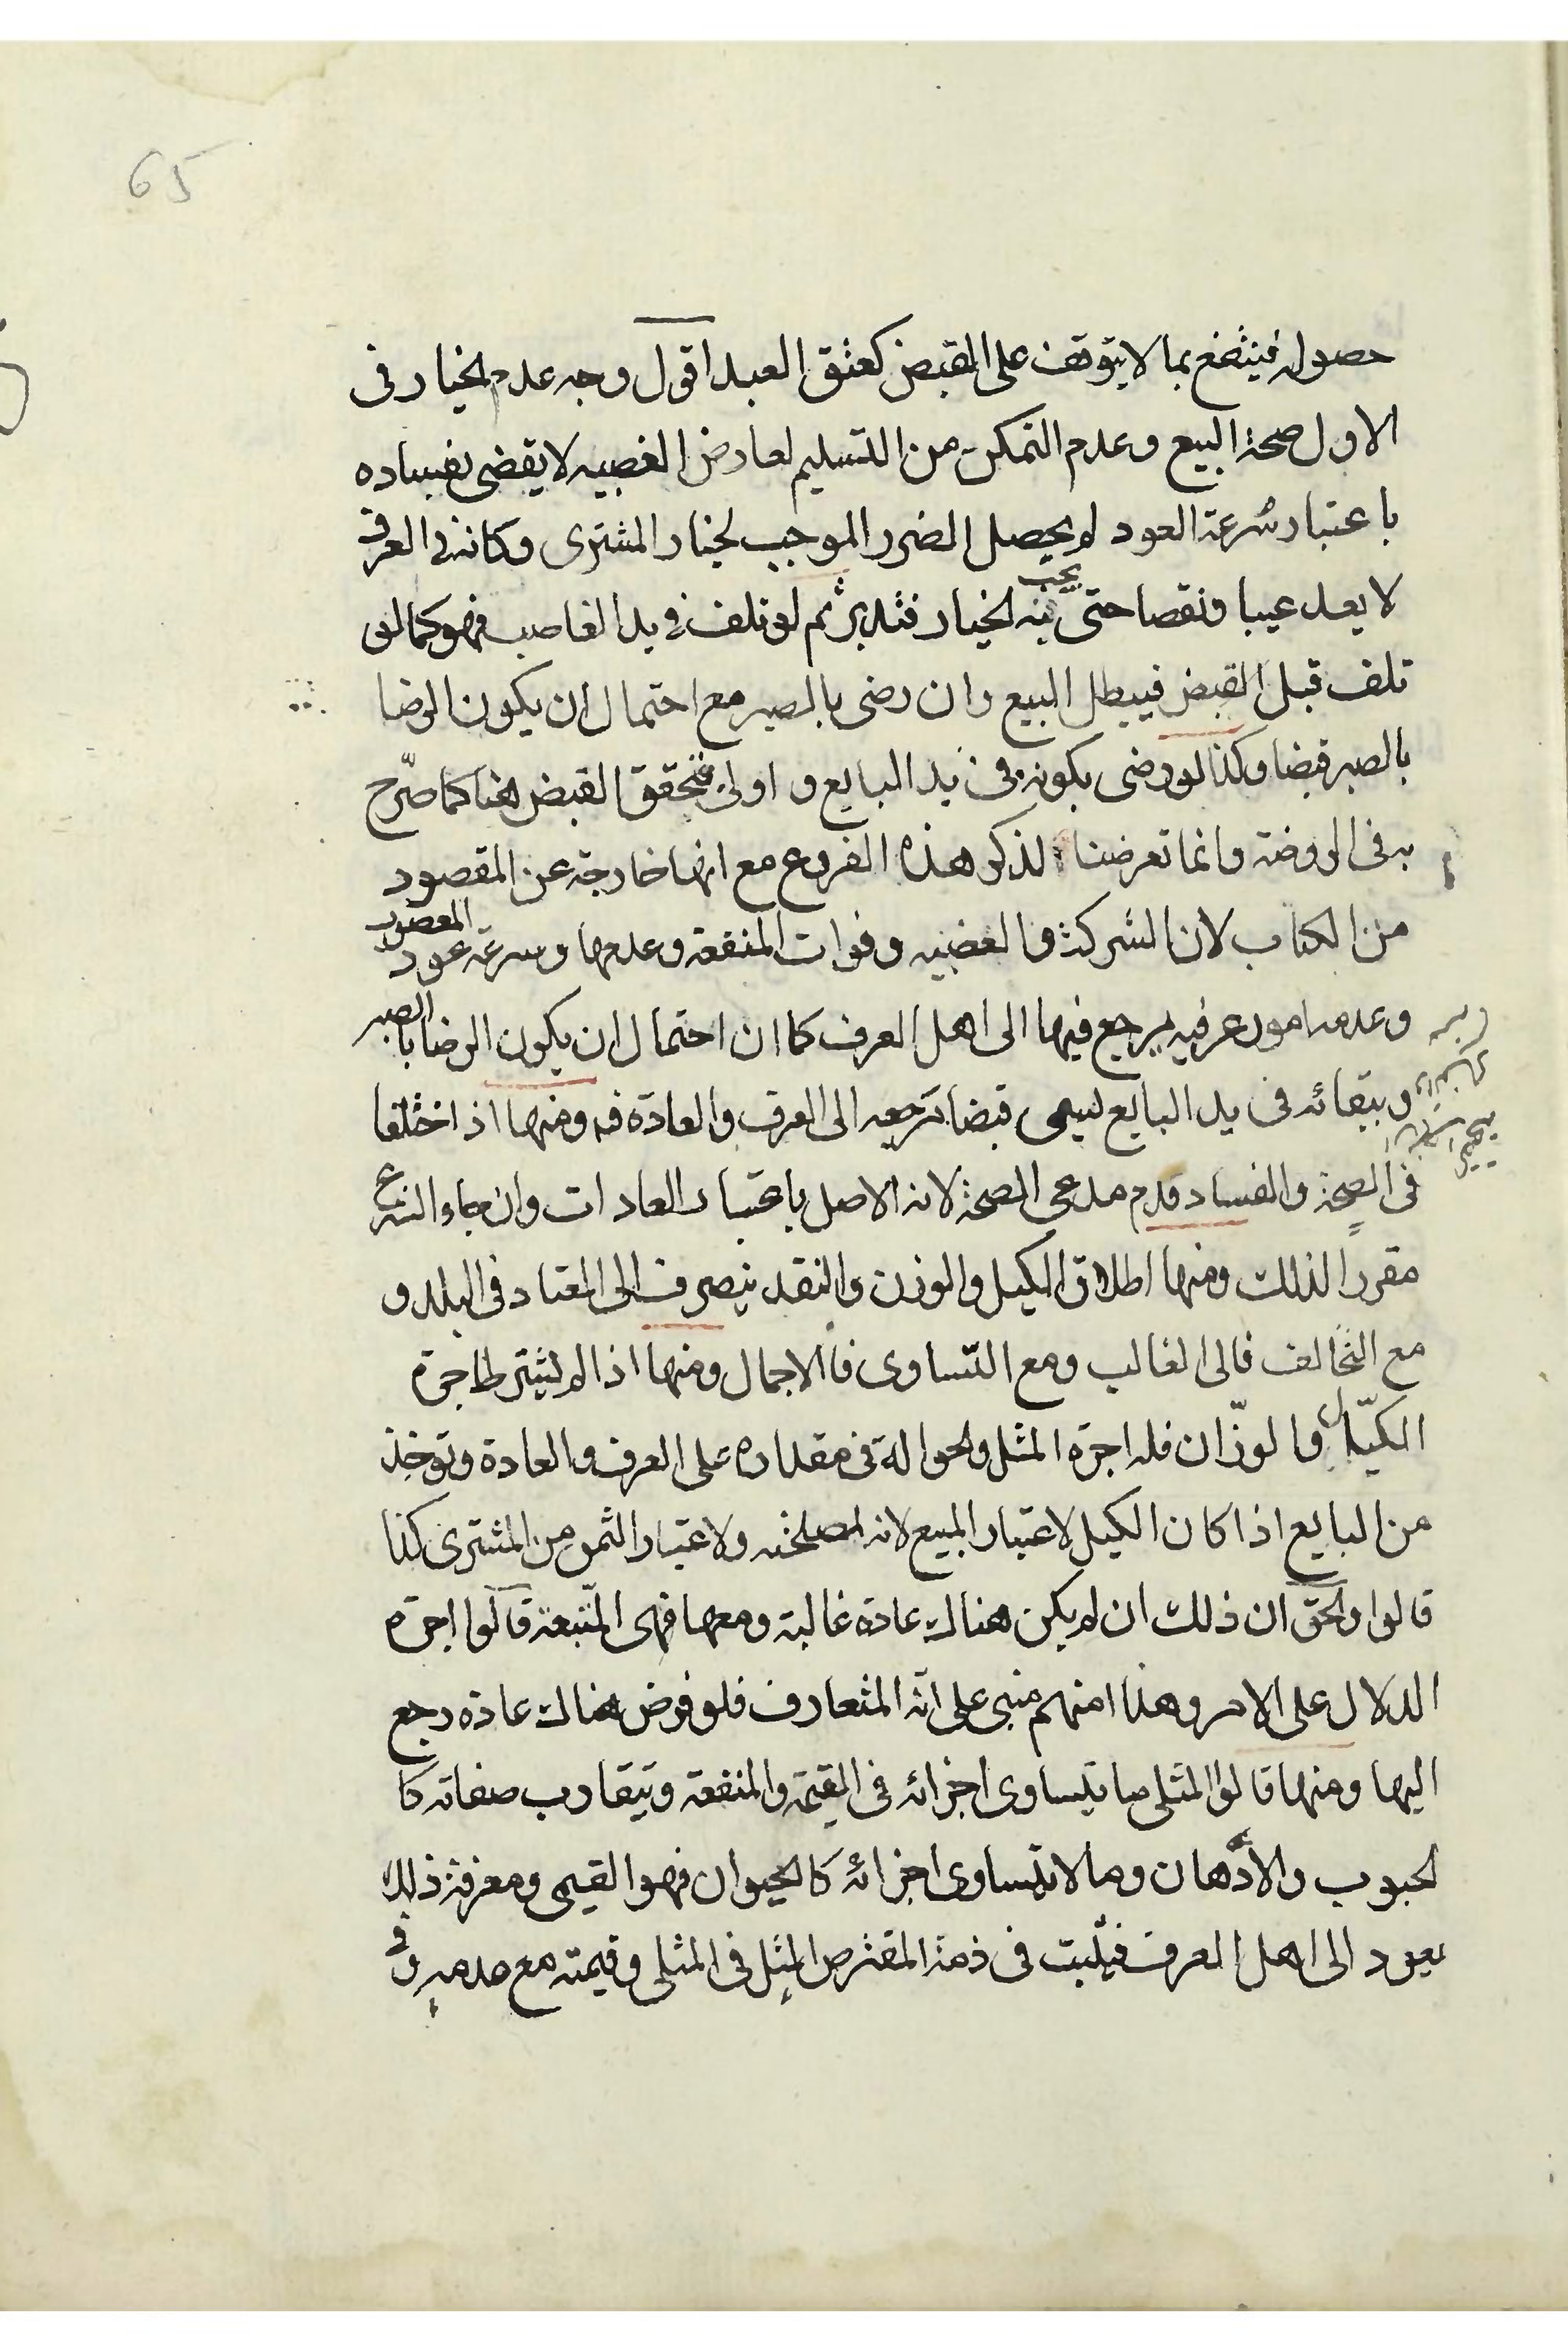 65
حصوله فينتفع بما لا يتوقف على القبض كعتق العبد اقول وجه عدم الخيار فى
الاول صحة البيع وعدم التمكن من التسليم لعارض الغصبيه لا يقضى بفساده
باعتبار سرعة العود لم يحصل الضرر الموجب لخيار المشترى وكانه فى العرف
لا يعد عيبا ونقصا حتى يجب به الخيار فتدبر ثم لو تلف فى يد الغاصب فهو كما لو
تلف قبل القبض فيبطل البيع وان رضى بالصبر مع احتمال ان يكون الرضا
بالصبر قبضا وكذا لو رضى بكونه فى يد البايع واولى بتحقق القبض هنا كما صرّح
به فى الروضة وانما تعرضنا لذكر هذه الفروع مع انها خارجة عن المقصود
من الكتاب لان الشركة والغصبيه وفوات المنفعة وعدمها وسرعة عود المغصوب
وعدمه امور عرفيه يرجع فيها الى اهل العرف كما ان احتمال ان يكون الرضا بالصبر
وببقائه فى يد البايع ليسمى قبضا مرجعه الى العرف والعادة فه ومنها اذ اختلفا
فى الصحة والفساد قدم مدعى الصحة لانه الاصل باعتبار العادات وان جاء الشرع
مقررا لذلك ومنها اطلاق الكيل والوزن والنقد ينصرف الى المعتاد فى البلد و
مع التخالف فالى الغالب ومع التساوى فالاجمال ومنها اذا لم يشترط اجرة
الكيّال والوزّان فله اجرة المثل والحوالة فى مقداره على العرف والعادة وتوخذ
من البايع اذا كان الكيل لاعتبار المبيع لانه لمصلحته ولاعتبار الثمن من المشترى كذا
قالوا والحق ان ذلك ان لم يكن هناك عادة غالبة ومعها فهى المتبعة قالوا اجرة
الدلال على الامر وهذا منهم مبنى على انه المتعارف فلو فرض هناك عادة رجع
اليها ومنها قالوا المثلى ما يتساوى اجزائه فى القيمة والمنفعة وتيقارب صفاته كا
لحبوب والادهان وما لا يتساوى اجزائه كالحيوان فهو القيمى ومعرفة ذلك
يعود الى اهل العرف فيثبت فى ذمة المقترض المثل فى المثلى وقيمته مع عدمه وفى